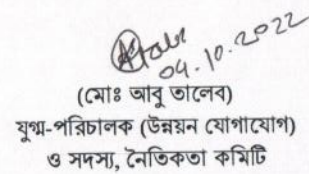 04.10.2022
(মোঃ আবু তালেব)
যুগ্ম-পরিচালক (উন্নয়ন যোগাযোগ)
ও সদস্য, নৈতিকতা কমিটি